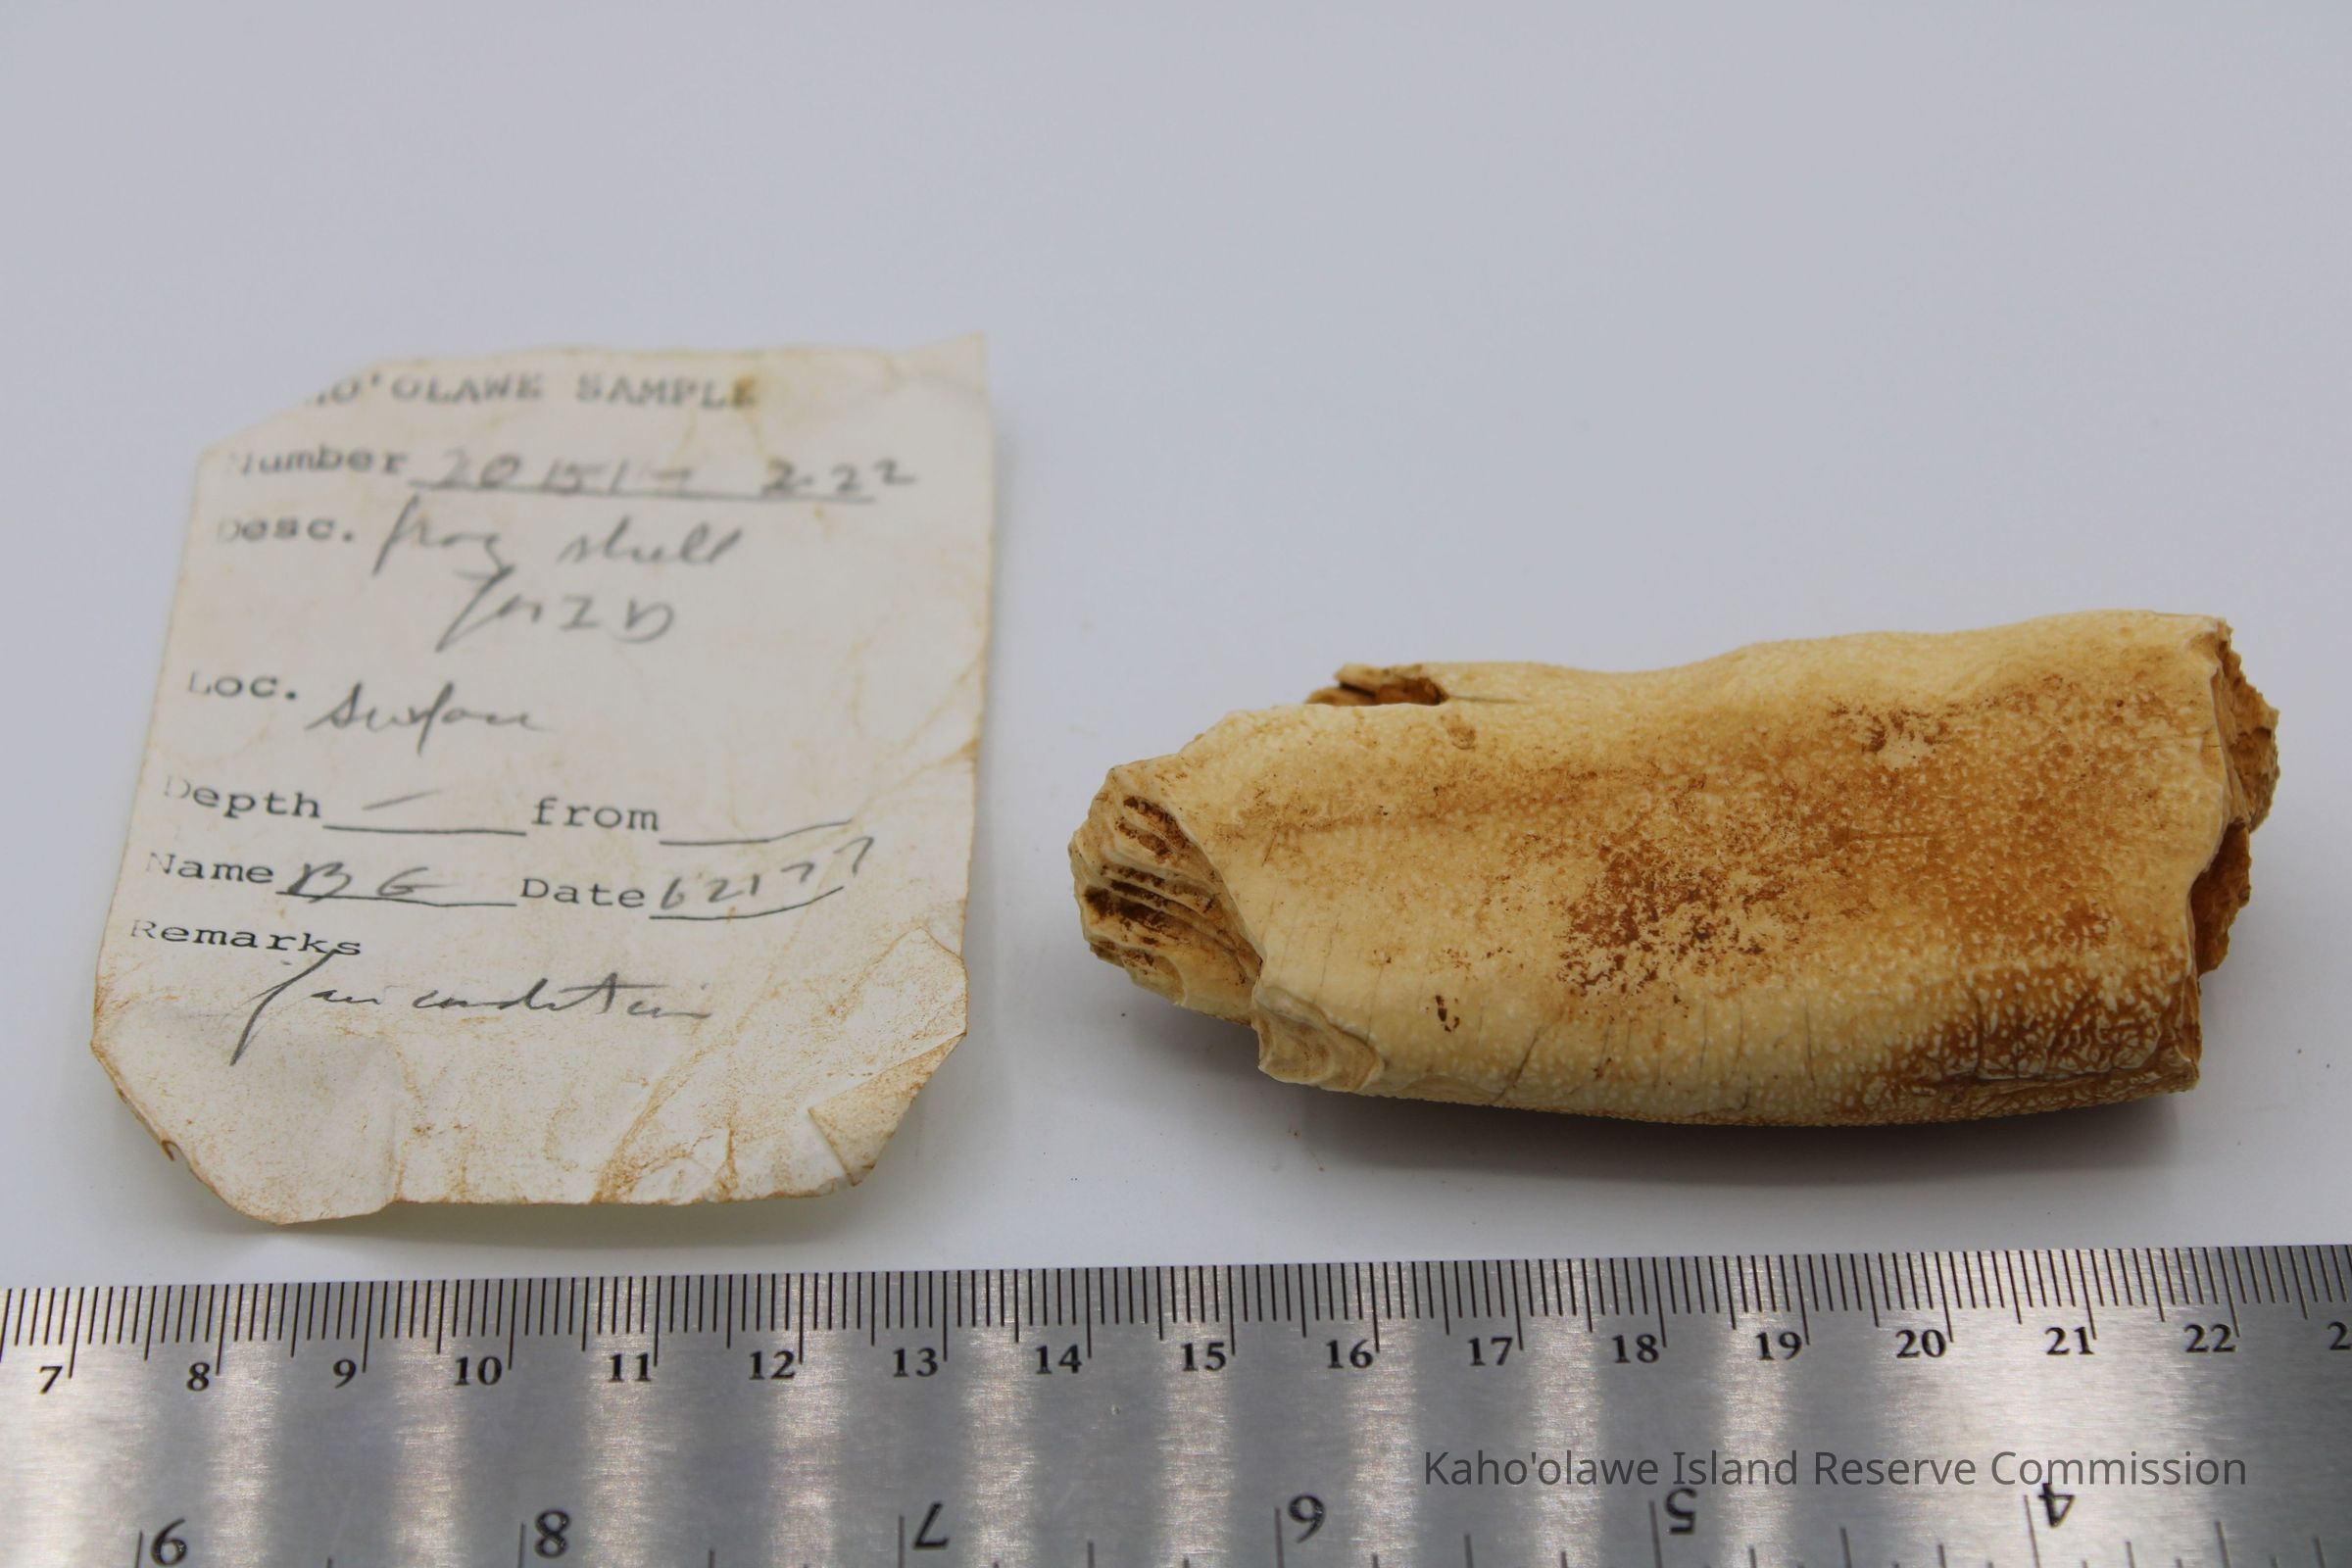 HO'OLAWE SAMPLE
Number 20 151 - 2.22
Desc. frag shell
Loc. Surface
Depth — from
Name BG Date 62177
Remarks
fair condition
7 8 9 10 11 12 13 14 15 16 17 18 19 20 21 22 2
Kaho'olawe Island Reserve Commission
9 8 7 6 5 4